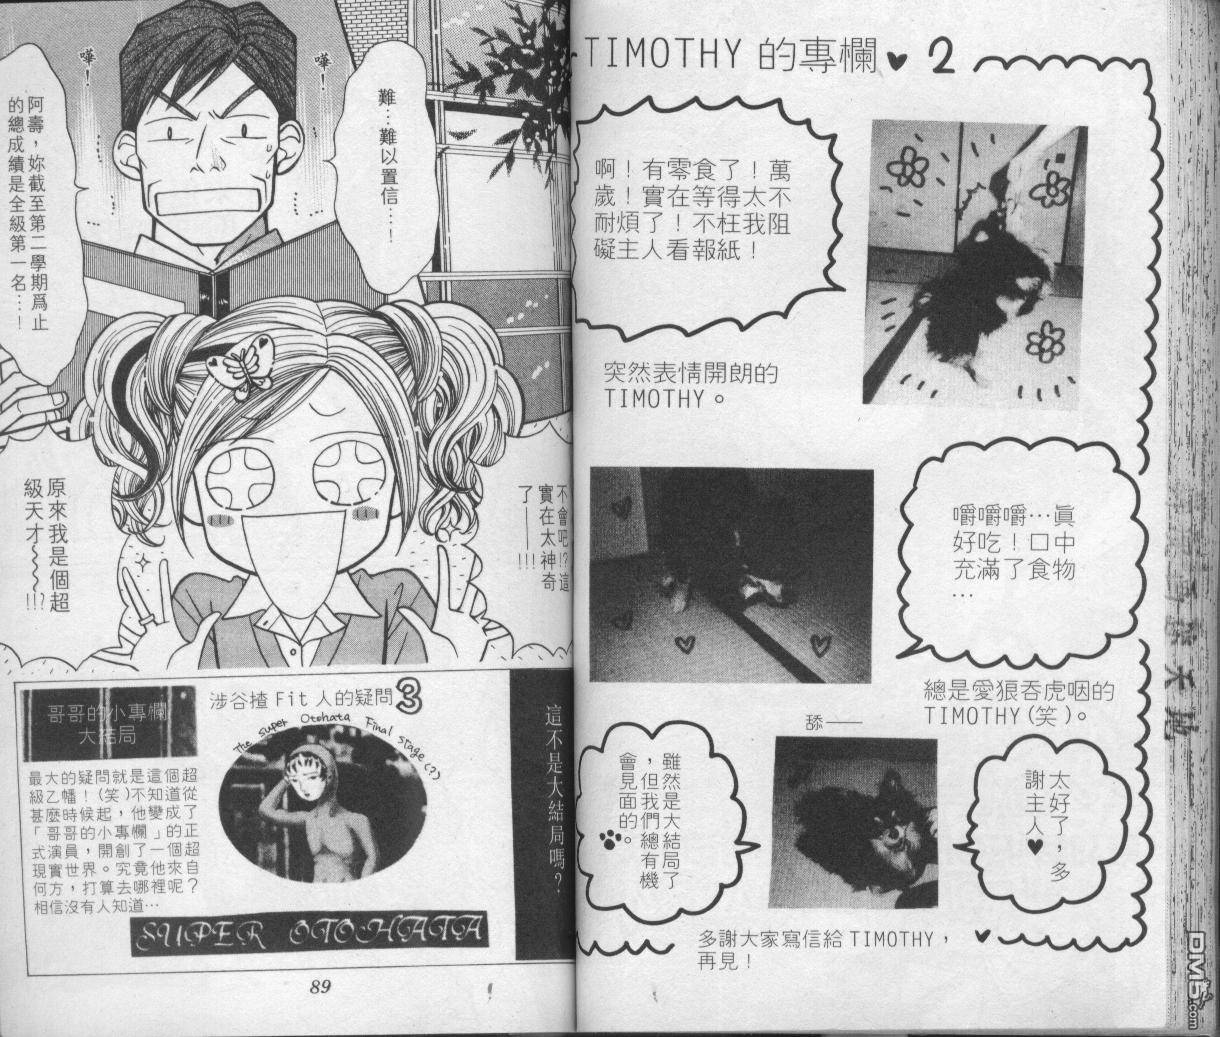 TIMOTHY 的專欄♥ 2
啊！有零食了！萬
歲！實在等得太不
耐煩了！不枉我阻
礙主人看報紙！
突然表情開朗的
TIMOTHY。
嚼嚼嚼…眞
好吃！口中
充滿了食物
…
總是愛狼吞虎咽的
TIMOTHY(笑)。
舔——
太好了，多
謝主人♥
雖然是大結局了
，但我們總有機
會見面的。
多謝大家寫信給 TIMOTHY，
再見！
嘩！
嘩！
難…難以置信…！
阿壽，妳截至第二學期爲止
的總成績是全級第一名…！
不會吧!?這
實在太神奇
了——!!!
原來我是個超
級天才~~~~!!?
哥哥的小專欄
大結局
涉谷揸 Fit 人的疑問3
The Super Otohata Final Stage(?)
最大的疑問就是這個超
級乙幡！(笑)不知道從
甚麼時候起，他變成了
「哥哥的小專欄」的正
式演員，開創了一個超
現實世界。究竟他來自
何方，打算去哪裡呢？
相信沒有人知道…
SUPER OTOHATA
這不是大結局嗎？
89
DM5.com